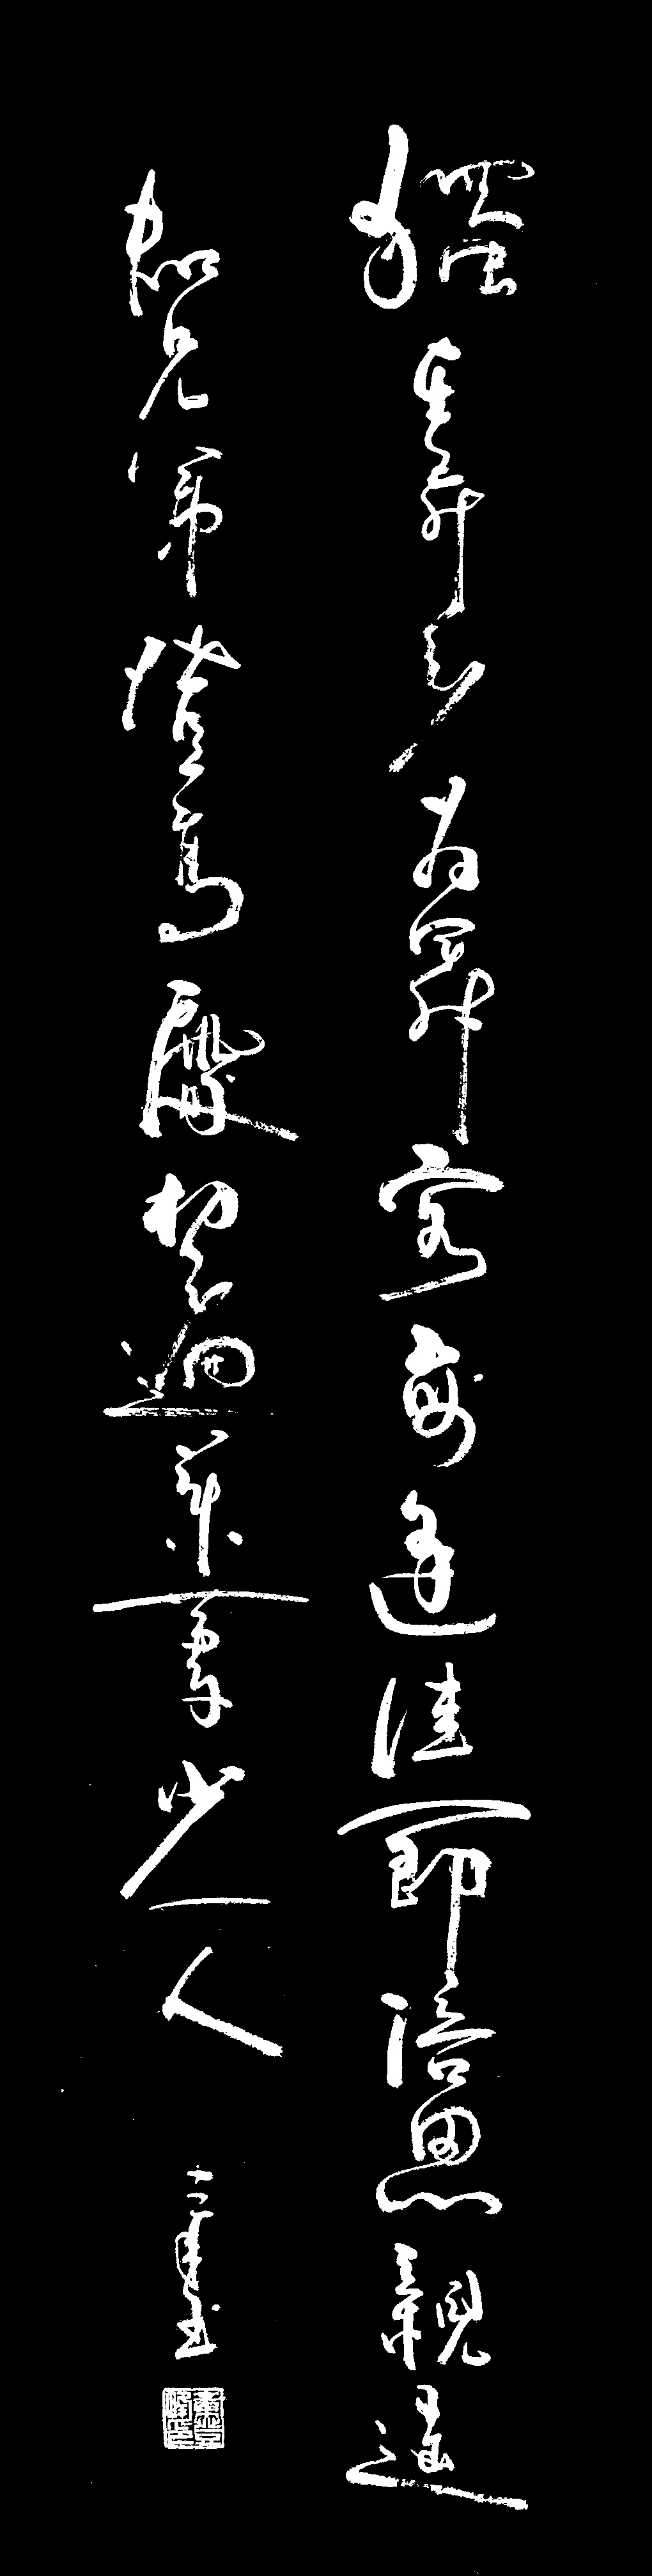 獨在異鄉為異客每逢佳節倍思親遥
知兄弟登高處插遍茱萸少一人
書